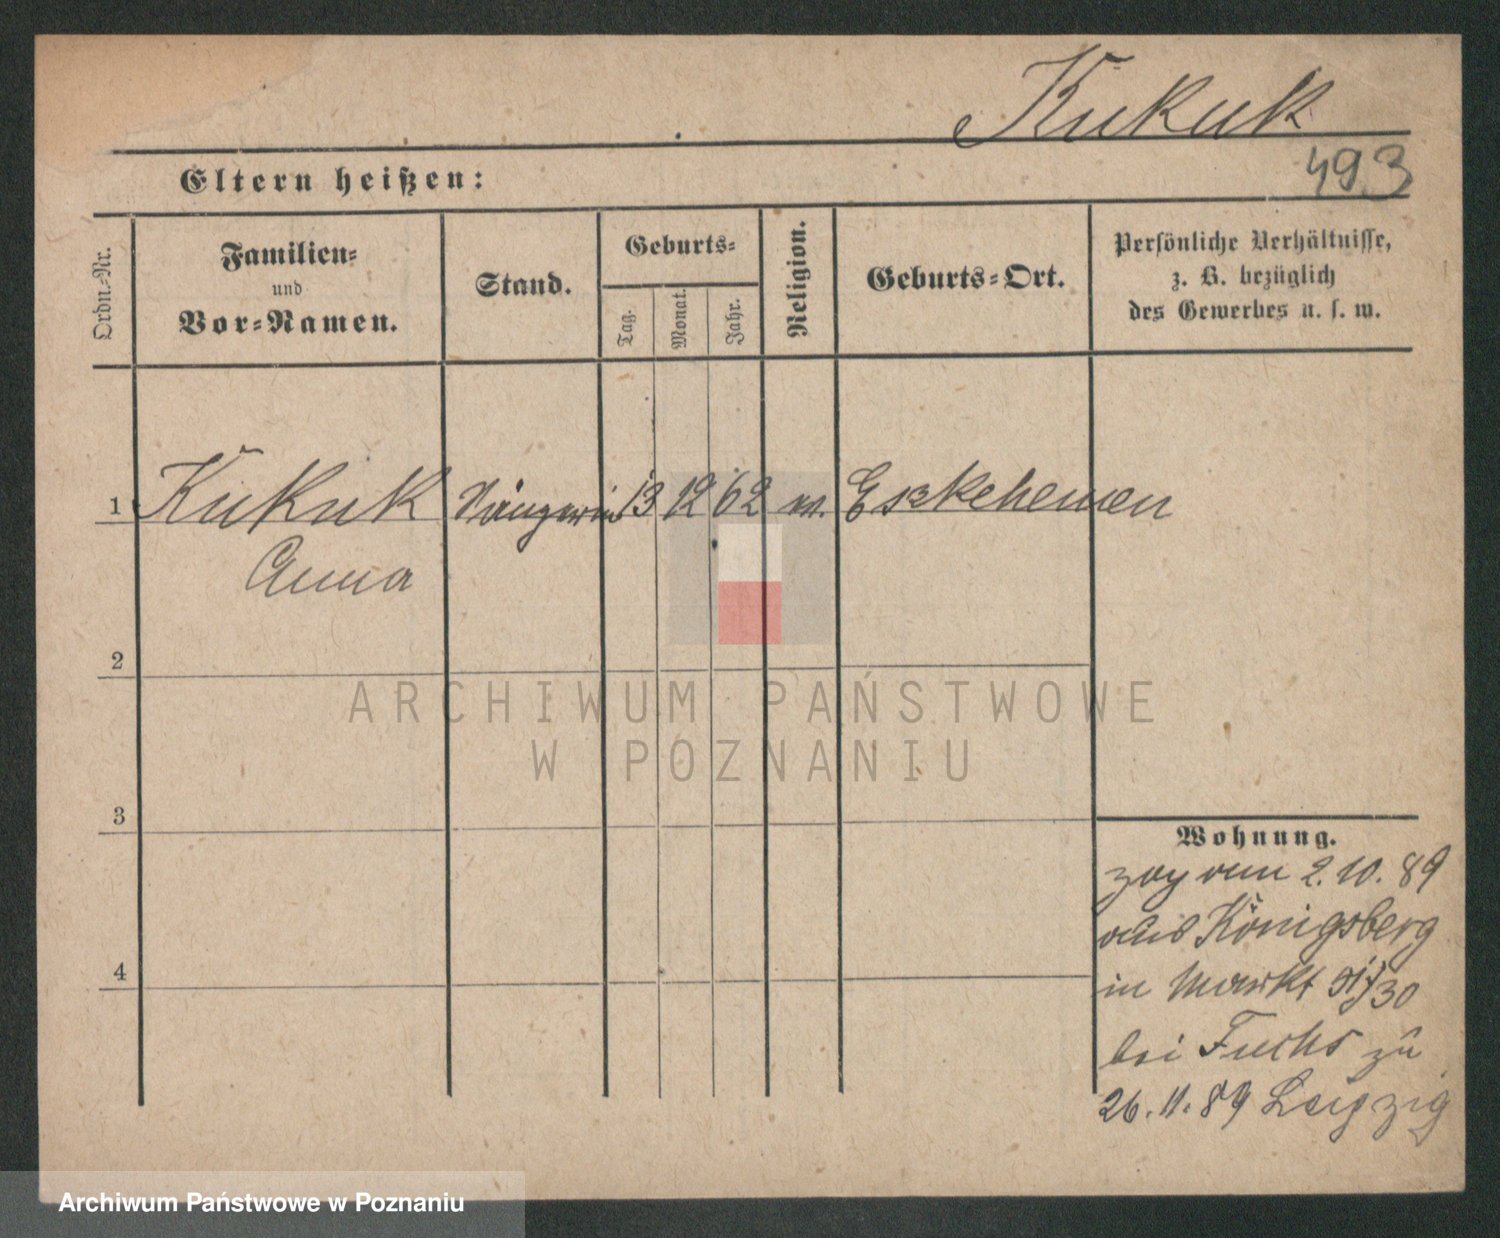 Kukuk
493
Eltern heißen:
Ordn.-Nr.
Familien-
und
Vor-Namen.
Stand.
Geburts-
Tag.
Monat.
Jahr.
Religion.
Geburts-Ort.
Persönliche Verhältnisse,
z. B. bezüglich
des Gewerbes u. s. w.
1 Kukuk Sängerin 13 12 62 ev. Esskehemen
Anna
2
3
4
Wohnung.
zog vom 2.10.89
aus Königsberg
in Markt
bei Fuchs zu
26.11.89 Leipzig
ARCHIWUM PAŃSTWOWE
W POZNANIU
Archiwum Państwowe w Poznaniu